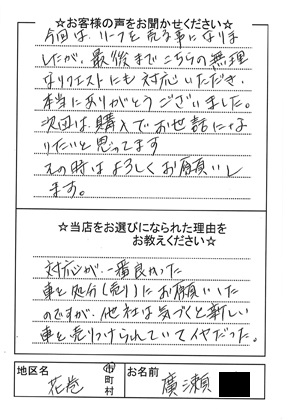 ☆お客様の声をお聞かせください☆
今回は、リーフを売る事になりま
したが、最後までこちらの無理
なリクエストにも対応いただき、
本当にありがとうございました。
次回は、購入でお世話にな
りたいと思ってます
その時はよろしくお願いし
ます。
☆当店をお選びになられた理由を
お教えください☆
対応が一番良かった
車を処分(売り)にお願いした
のですが、他社は気づくと新しい
車を売りつけられんていてイヤだった。
地区名
花巻
市
町
村
お名前
廣瀬